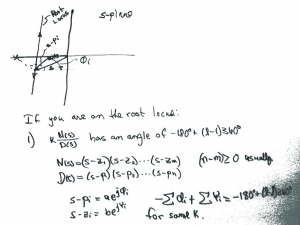 s-plane
Root
Locus
s-pi
Φi
If you are on the root locus:
1) K N(s)/D(s) has an angle of -180°+(l-1)360°
N(s)=(s-z1)(s-z2)···(s-zm) (n-m)≥0 usually
D(s)=(s-p1)(s-p2)···(s-pn)
s-pi = ae^jΦi
s-zi = be^jΨi
-ΣΦi + ΣΨi = -180°+(l-1)360°
for some K.